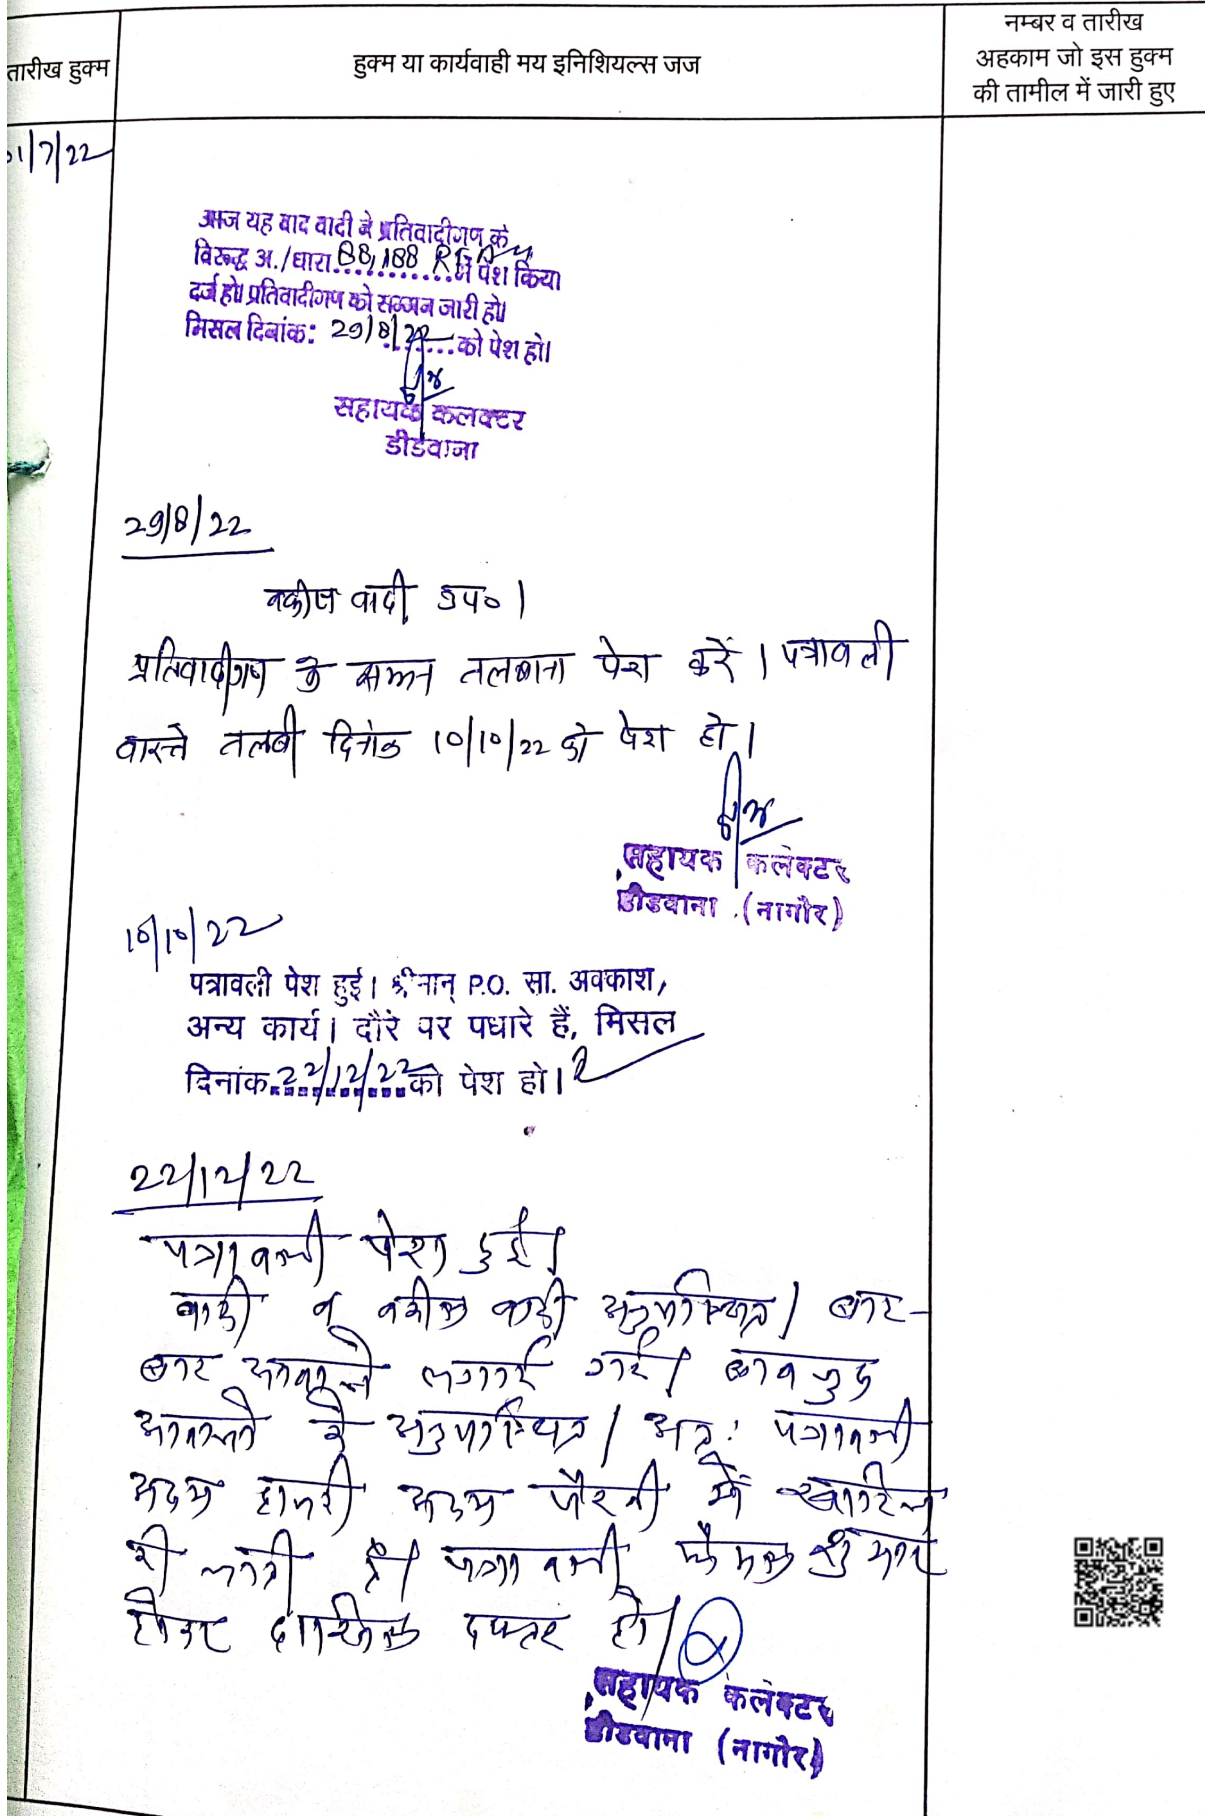 तारीख हुक्म
हुक्म या कार्यवाही मय इनिशियल्स जज
नम्बर व तारीख
अहकाम जो इस हुक्म
की तामील में जारी हुए
01/7/22
आज यह वाद वादी ने प्रतिवादीगण के
विरूद्ध अ./धारा 88,188 में पेश किया
दर्ज हो। प्रतिवादीगण को सम्मन जारी हो।
मिसल दिनांक: 29/8/22 को पेश हो।
सहायक कलक्टर
डीडवाना
29/8/22
वकील वादी उप०।
प्रतिवादीगण के समन तलबाना पेश करें। पत्रावली
वास्ते तलबी दिनांक 10/10/22 को पेश हो।
सहायक कलेक्टर
डीडवाना (नागौर)
10/10/22
पत्रावली पेश हुई। श्रीमान् P.O. सा. अवकाश,
अन्य कार्य। दौरे पर पधारे हैं, मिसल
दिनांक 22/12/22 को पेश हो।
22/12/22
पत्रावली पेश हुई।
वादी व वकील वादी अनुपस्थित। बार-
बार आवाजे लगाई गई। बावजुद
आवाजो के अनुपस्थित। अतः पत्रावली
अदम हाजरी अदम पैरवी में खारिज
की जाती है। पत्रावली फैसल शुमार
होकर दाखिल दफ्तर हो।
सहायक कलेक्टर
डीडवाना (नागौर)